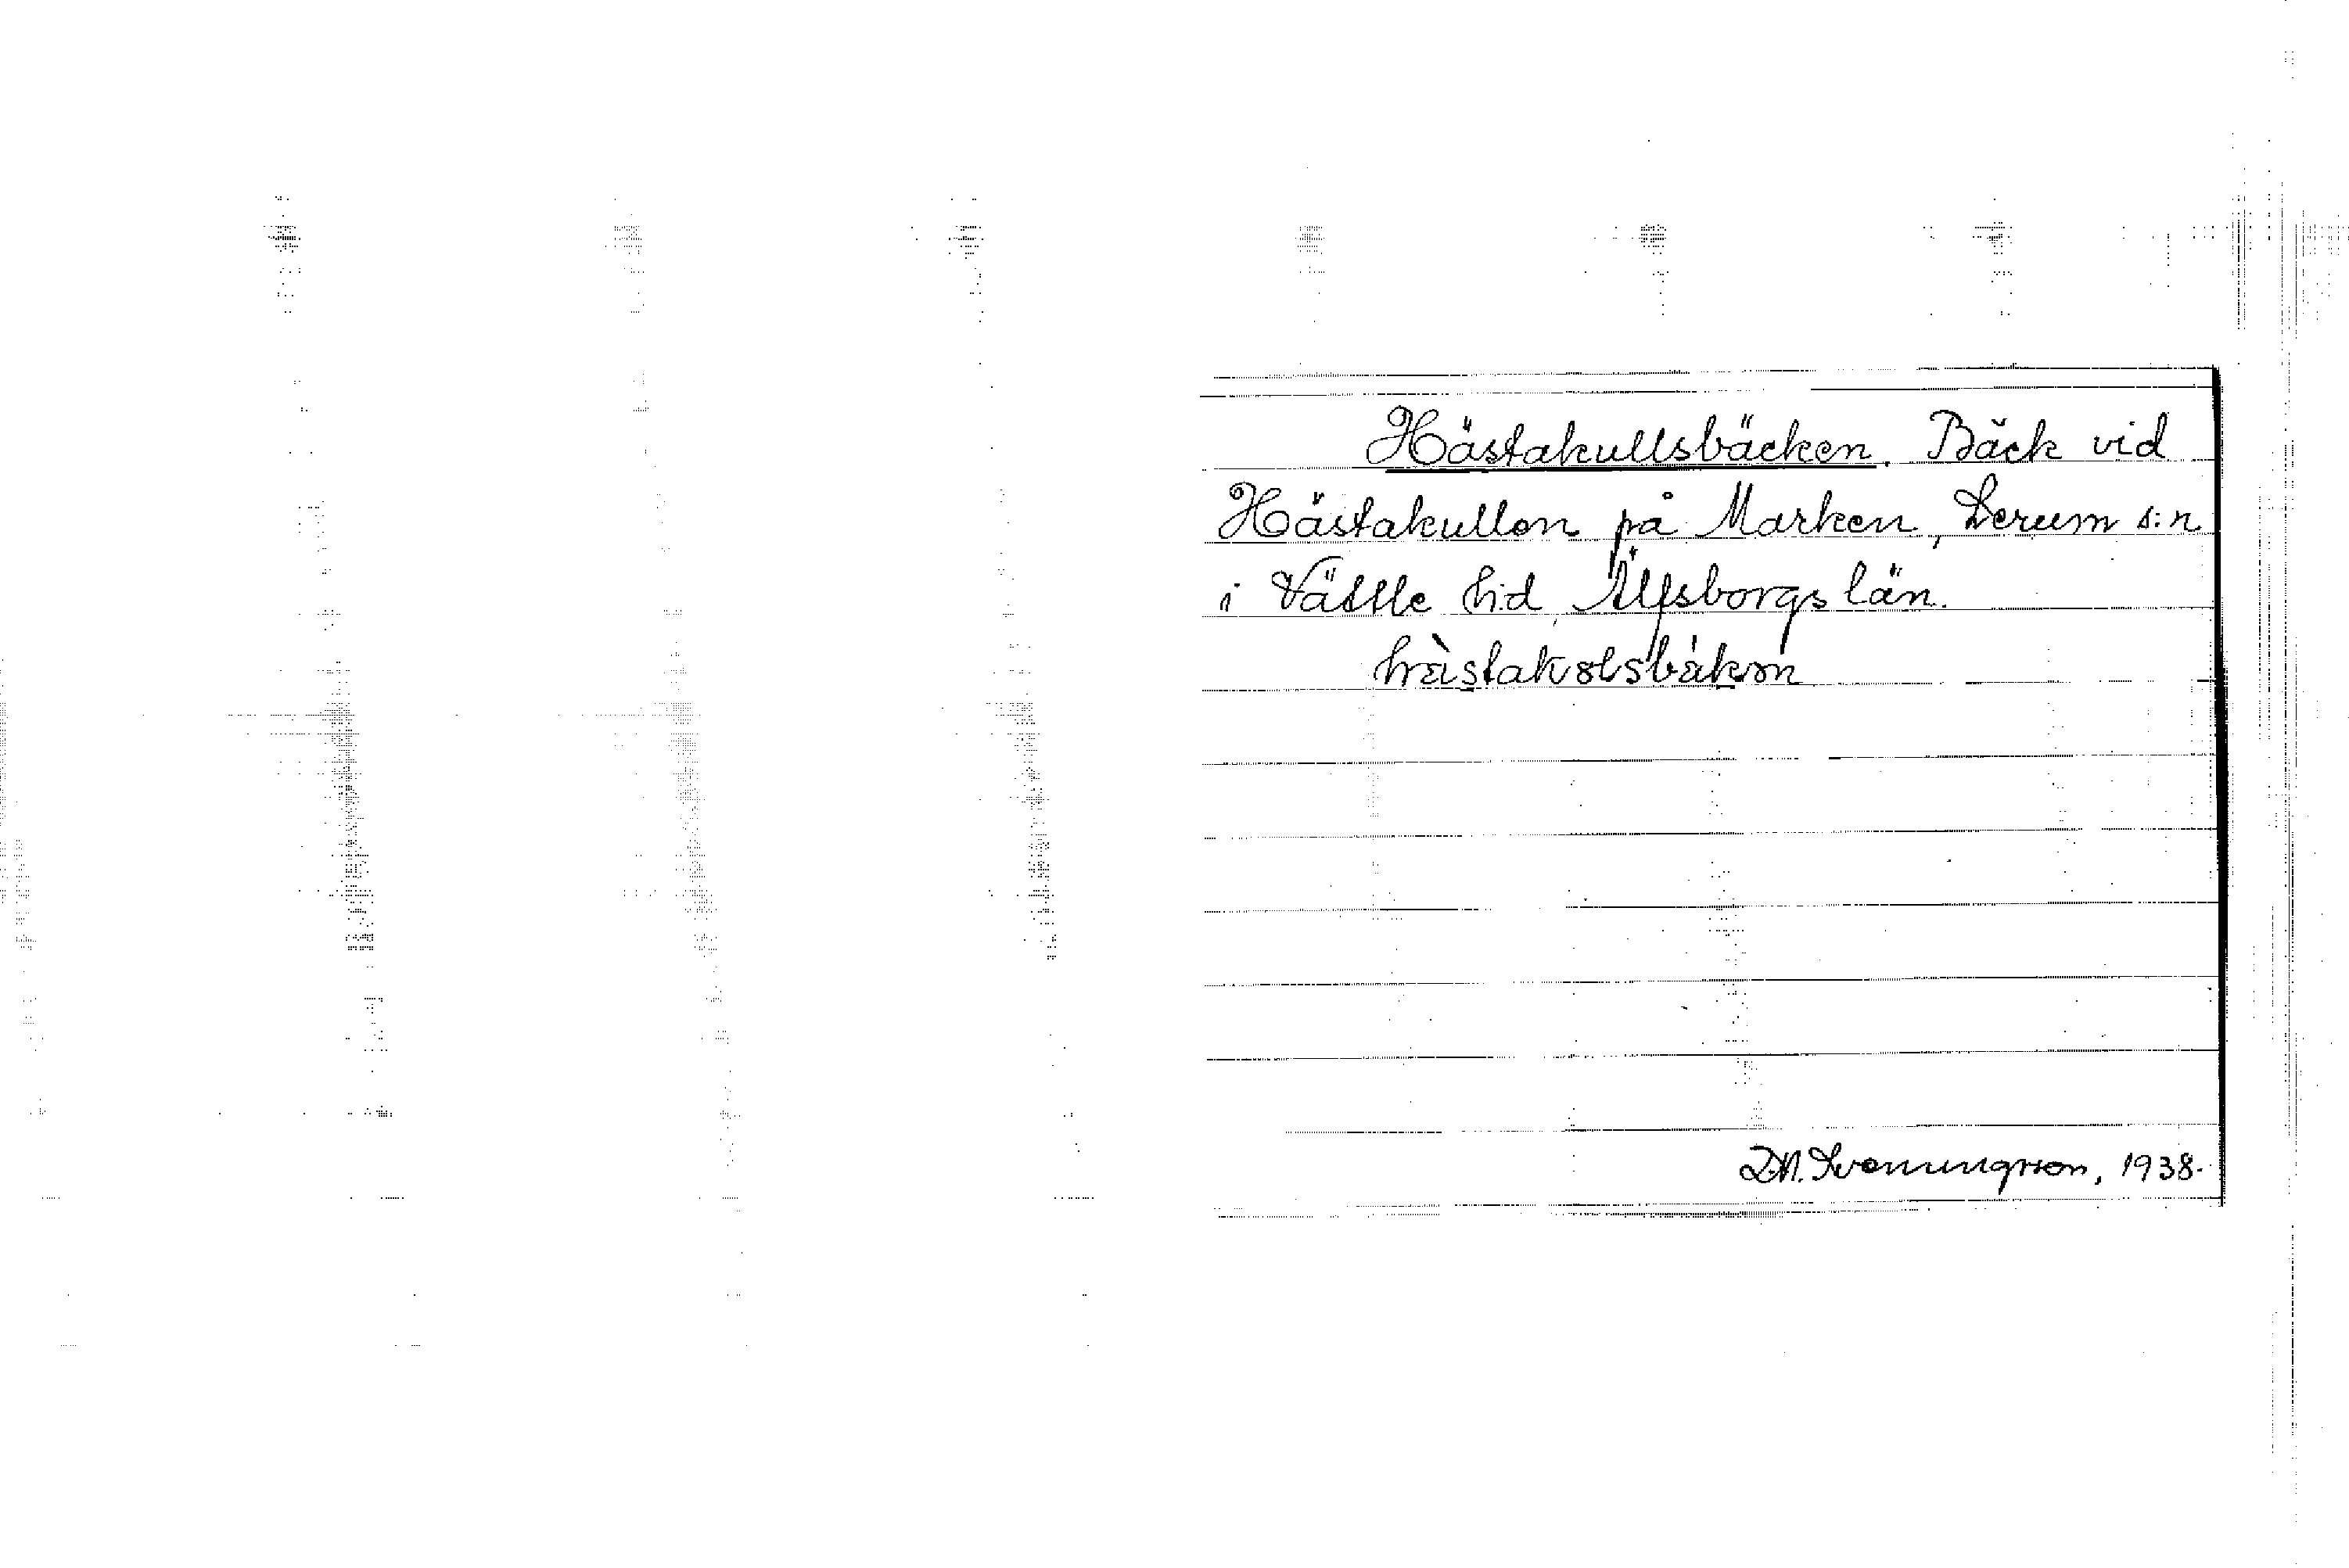 Hästakullsbäcken. Bäck vid
Hästakullen på Marken, Lerum s:n
i Vättle hd, Älfsborgs län.
1938.